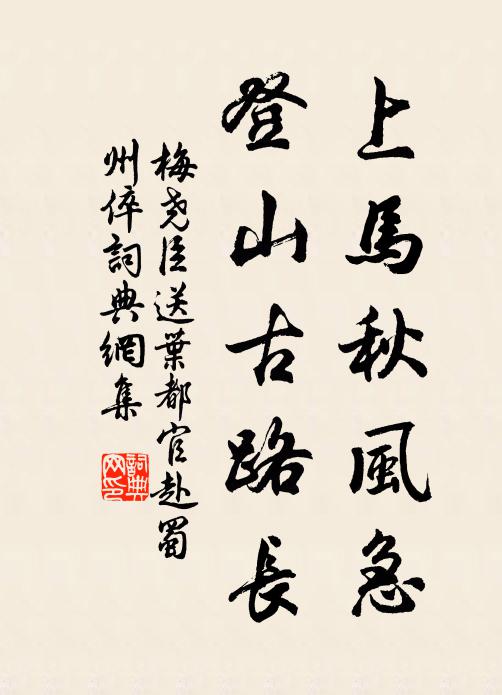 上馬秋風急
登山古路長
梅堯臣送葉都官赴蜀
州倅詞典網集
詞典
网印